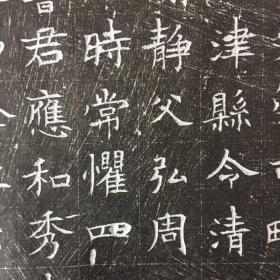 津縣令清
靜父弘周
時常懼四
君應和秀